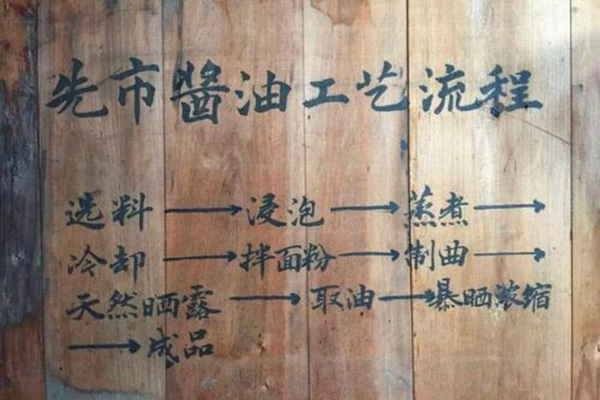 先市醬油工艺流程
选料→浸泡→蒸煮→
冷却→拌面粉→制曲→
天然晒露→取油→暴晒浓缩
→成品